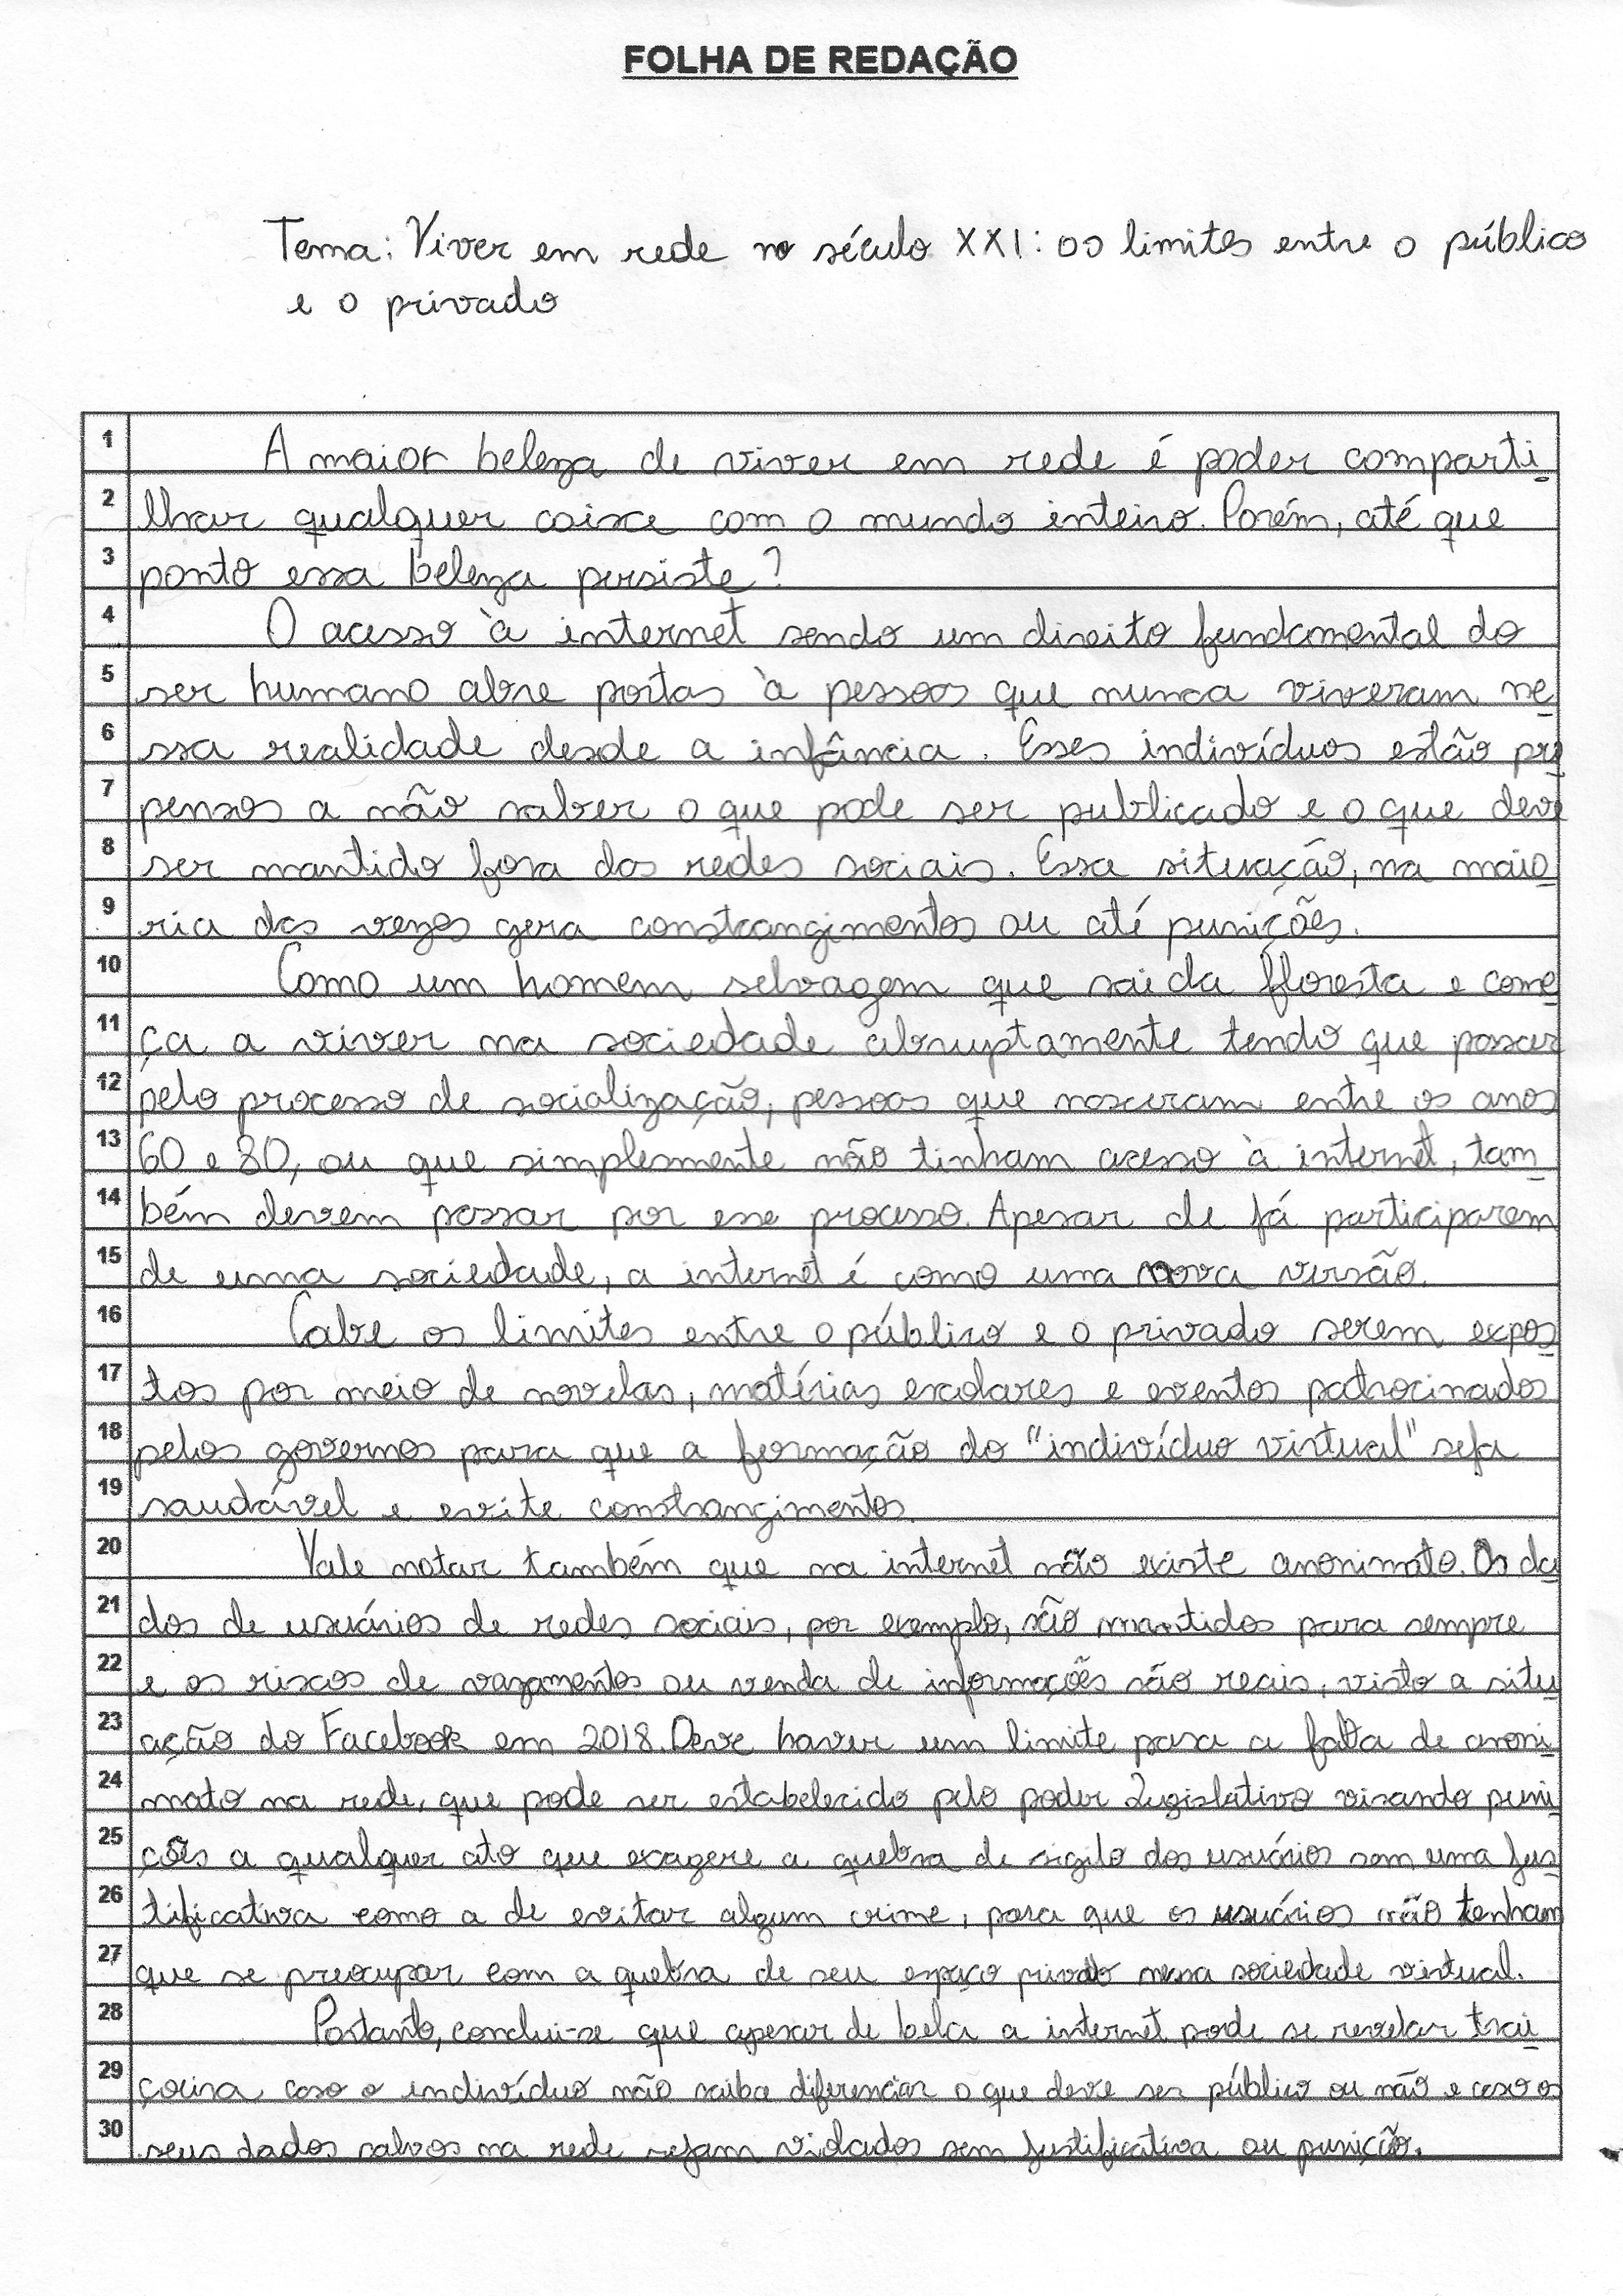 FOLHA DE REDAÇÃO
Tema: Viver em rede no século XXI: os limites entre o público
e o privado
1 A maior beleza de viver em rede é poder comparti
2 lhar qualquer coisa com o mundo inteiro. Porém, até que
3 ponto essa beleza persiste?
4 O acesso à internet sendo um direito fundamental do
5 ser humano abre portas à pessoas que nunca viveram ne
6 ssa realidade desde a infância. Esses indivíduos estão pro
7 pensos a não saber o que pode ser publicado e o que deve
8 ser mantido fora das redes sociais. Essa situação, na maio
9 ria das vezes gera constrangimentos ou até punições.
10 Como um homem selvagem que sai da floresta e come
11 ça a viver na sociedade abruptamente tendo que passar
12 pelo processo de socialização, pessoas que nasceram entre os anos
13 60 e 80, ou que simplesmente não tinham acesso à internet, tam
14 bém devem passar por esse processo. Apesar de já participarem
15 de uma sociedade, a internet é como uma nova versão.
16 Cabe os limites entre o público e o privado serem expos
17 tos por meio de novelas, matérias escolares e eventos patrocinados
18 pelos governos para que a formação do "indivíduo virtual" seja
19 saudável e evite constrangimentos.
20 Vale notar também que na internet não existe anonimato. Os da
21 dos de usuários de redes sociais, por exemplo, são mantidos para sempre
22 e os riscos de vazamentos ou venda de informações são reais, visto a situ
23 ação do Facebook em 2018. Deve haver um limite para a falta de anoni
24 mato na rede, que pode ser estabelecido pelo poder Legislativo visando puni
25 ções a qualquer ato que exagere a quebra de sigilo dos usuários sem uma jus
26 tificativa como a de evitar algum crime, para que os usuários não tenham
27 que se preocupar com a quebra de seu espaço privado nessa sociedade virtual.
28 Portanto, conclui-se que apesar de bela a internet pode se revelar trai
29 çoeira caso o indivíduo não saiba diferenciar o que deve ser público ou não e caso os
30 seus dados salvos na rede sejam violados sem justificativa ou punição.